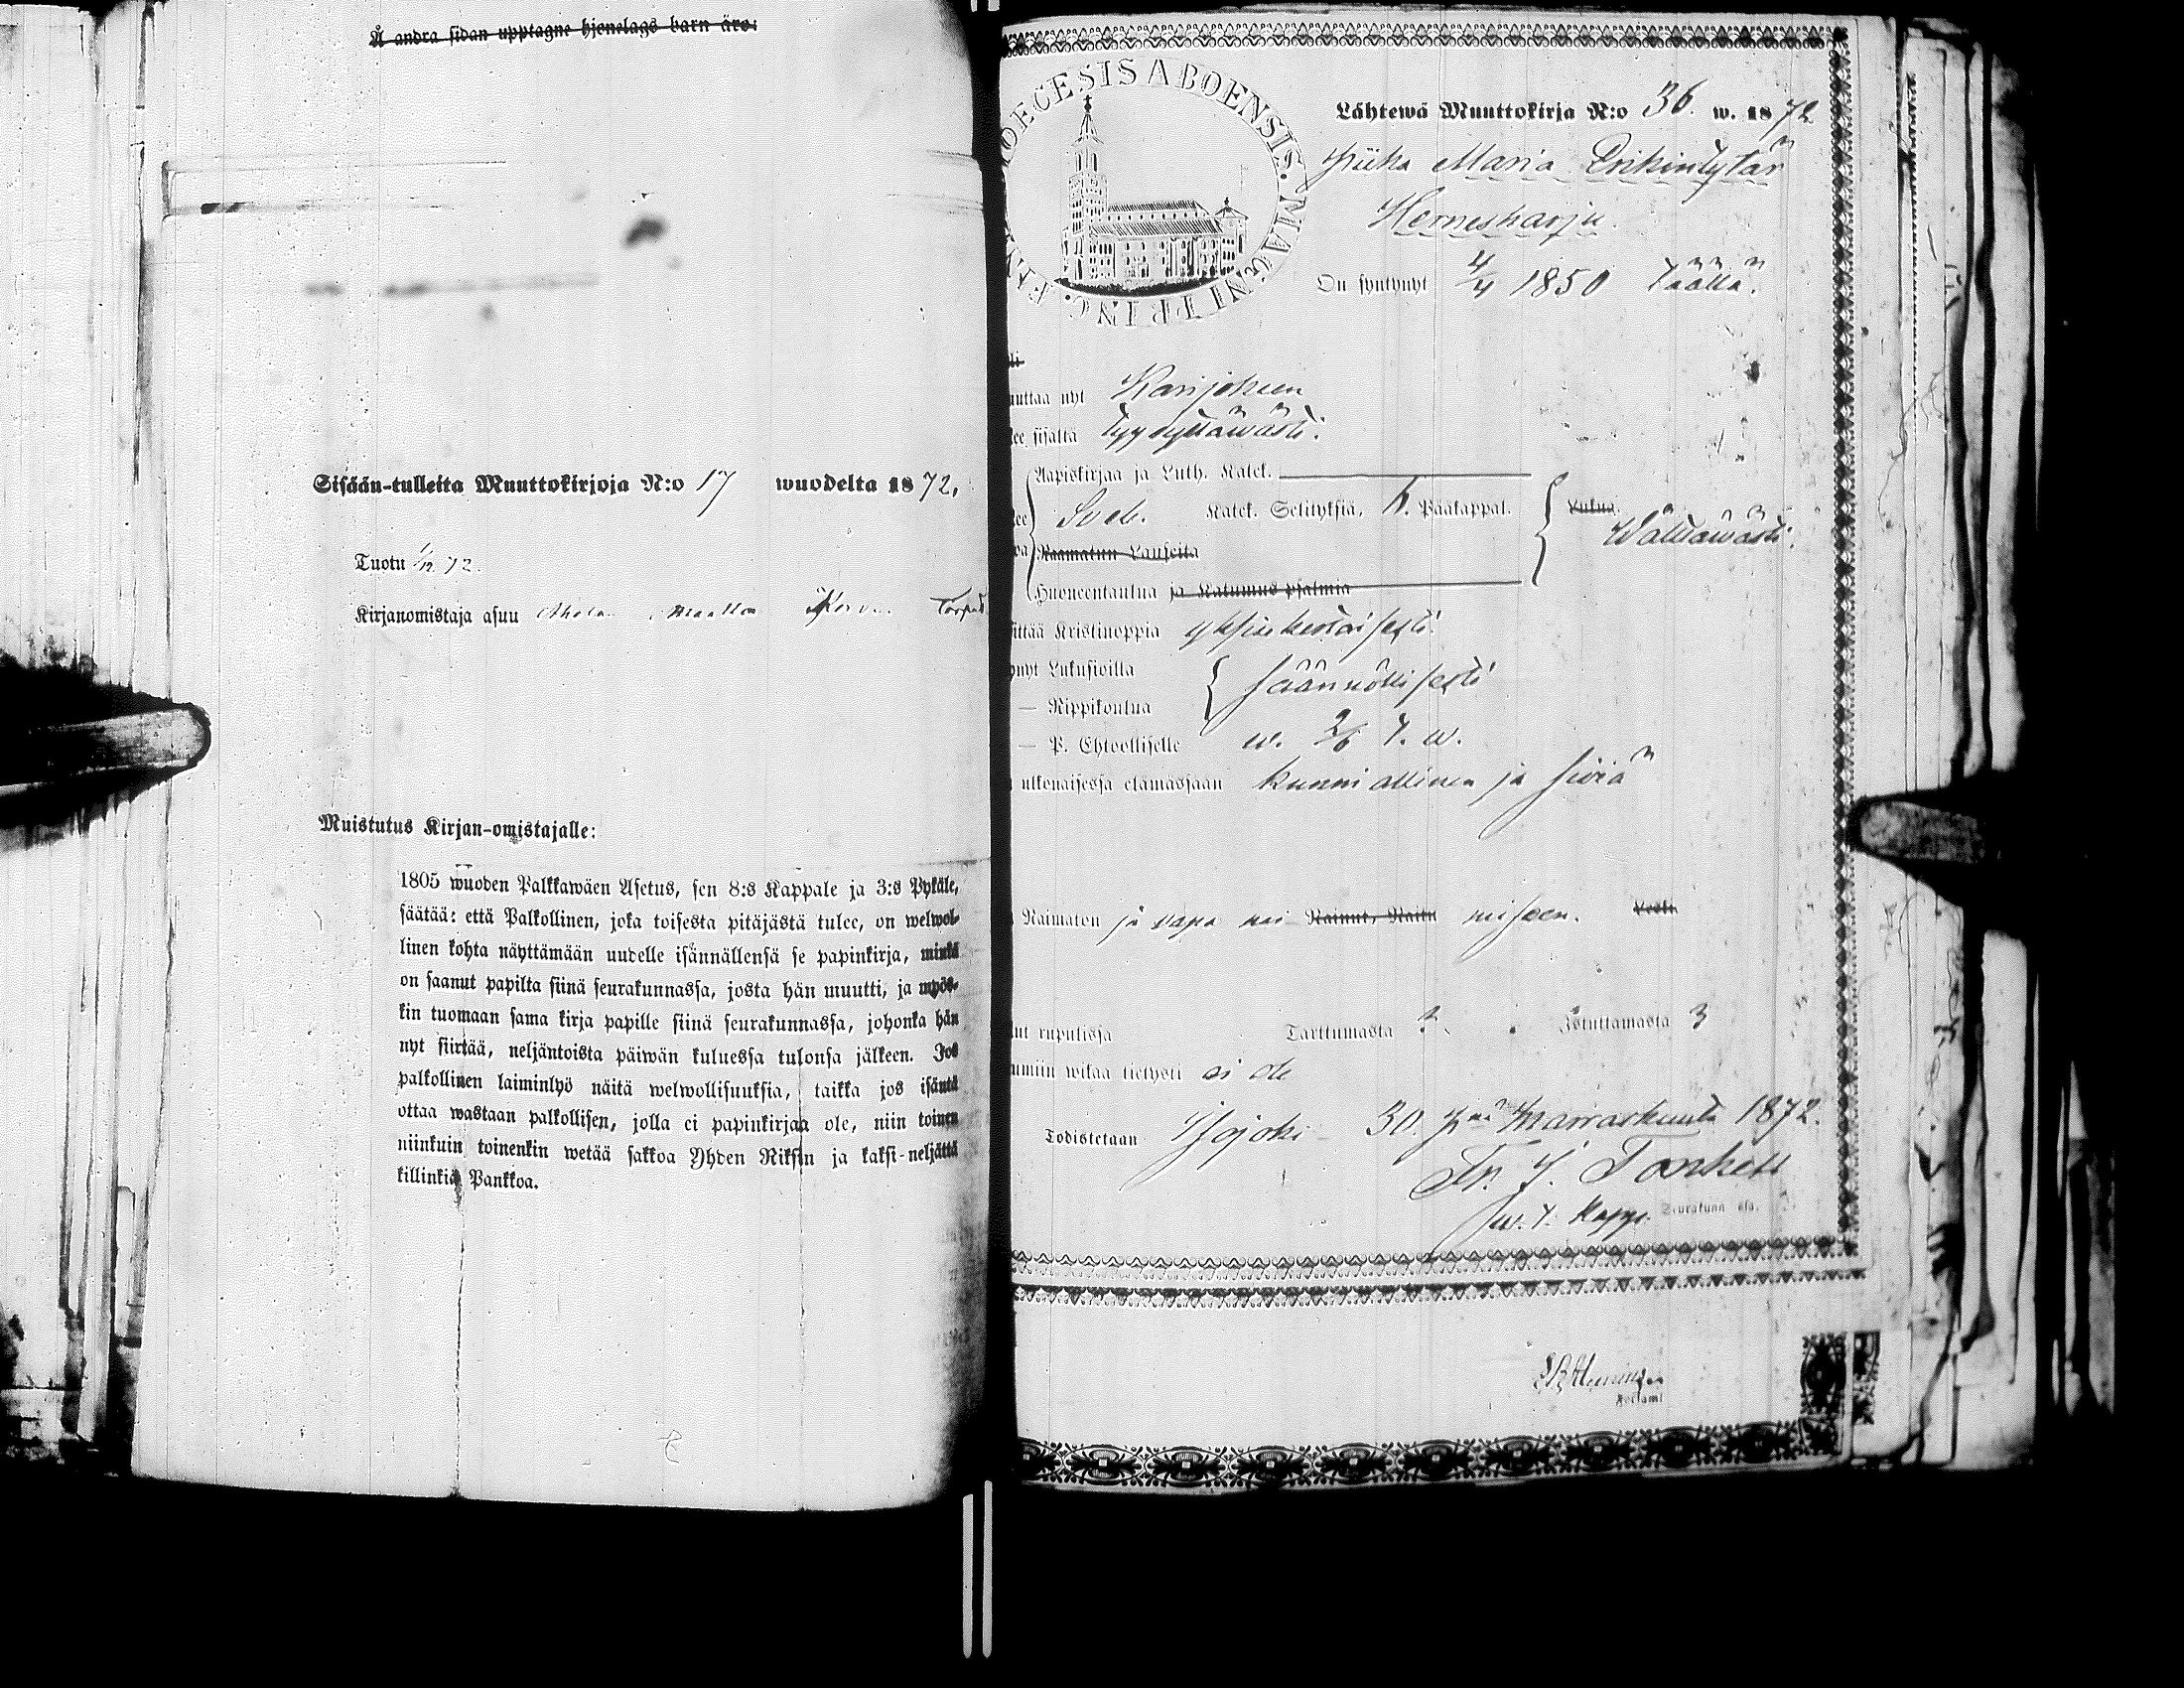 Å andra sidan upptagne hjonelags barn äro:
Sisään-tulleita Muuttokirjoja N:o 17 wuodelta 1872.
Tuotu 1/12 72.
Kirjanomistaja asuu
Muistutus Kirjan-omistajalle:
1805 wuoden Palkkawäen Asetus, sen 8:s Kappale ja 3:s Pykäle,
säätää: että Palkollinen, joka toisesta pitäjästä tulee, on welwol-
linen kohta näyttämään uudelle isännällensä se papinkirja, minkä
on saanut papilta siinä seurakunnassa, josta hän muutti, ja myös-
kin tuomaan sama kirja papille siinä seurakunnassa, johonka hän
nyt siirtää, neljäntoista päiwän kuluessa tulonsa jälkeen. Jos
palkollinen laiminlyö näitä welwollisuuksia, taikka jos isäntä
ottaa wastaan palkollisen, jolla ei papinkirjaa ole, niin toinen
niinkuin toinenkin wetää sakkoa Yhden Riksin ja kaksi-neljättä
killinkiä Pankkoa.
DIOECESIS ABOENSIS. MAGNI PRINC.
Lähtewä Muuttokirja N:o 36. w. 1872
Piika Maria Erikintytär
Hernesharju.
On syntynyt 4/4 1850 Täällä.
uuttaa nyt Karijokeen
ee sisältä tyydyttäwästi.
Aapiskirjaa ja Luth. Katek.
Sveb. Katek. Selityksiä, h. Pääkappal. Lukua.
Wälttäwästi.
Raamatun Lauseita
Huoneentaulua ja Katumus psalmia
ittää Kristinoppia yksinkertaisesti.
ynyt Lukusioilla säännöllisesti
— Rippikoulua
— P. Ehtoolliselle w. 2/6 t. w.
ulkonaisessa elämässään kunniallinen ja siviä
Naimaton ja vapa Nainut, Naitu Leski
ut rupulissa Tarttumasta ? Istuttamasta 3
umiin wikaa tietysti ei ole
Todistetaan Isojoki 30. p:nä Marraskuuta 1872.
Fr. J. Tarkell
Kappl. Seurakunn